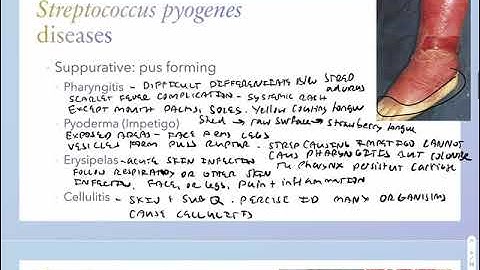 Streptococcus pyogenes
diseases
• Suppurative: pus forming
• Pharyngitis - DIFFICULT DIFFERENTIATE B/W STREP
& VIRUS
SCARLET FEVER COMPLICATION - SYSTEMIC RASH
EXCEPT MOUTH PALMS, SOLES. YELLOW COATING TONGUE
SHED → RAW SURFACE → STRAWBERRY TONGUE
• Pyoderma (Impetigo)
EXPOSED AREAS - FACE ARMS LEGS
VESICLES FORM PUSS RUPTUR - STREP CAUSING IMPETIGO CANNOT
CAUS PHARYNGITIS BUT COLONIZE
• Erysipelas - ACUTE SKIN INFECTION
THE PHARYNX PERSISTENT CARRIAGE
FOLLOW RESPIRATORY OR OTHER SKIN
INFECTION. FACE, OR LEGS, PAIN + INFLAMMATION
• Cellulitis - SKIN & SUB Q. PERCISE ID MANY ORGANISMS
CAUSE CELLULITIS